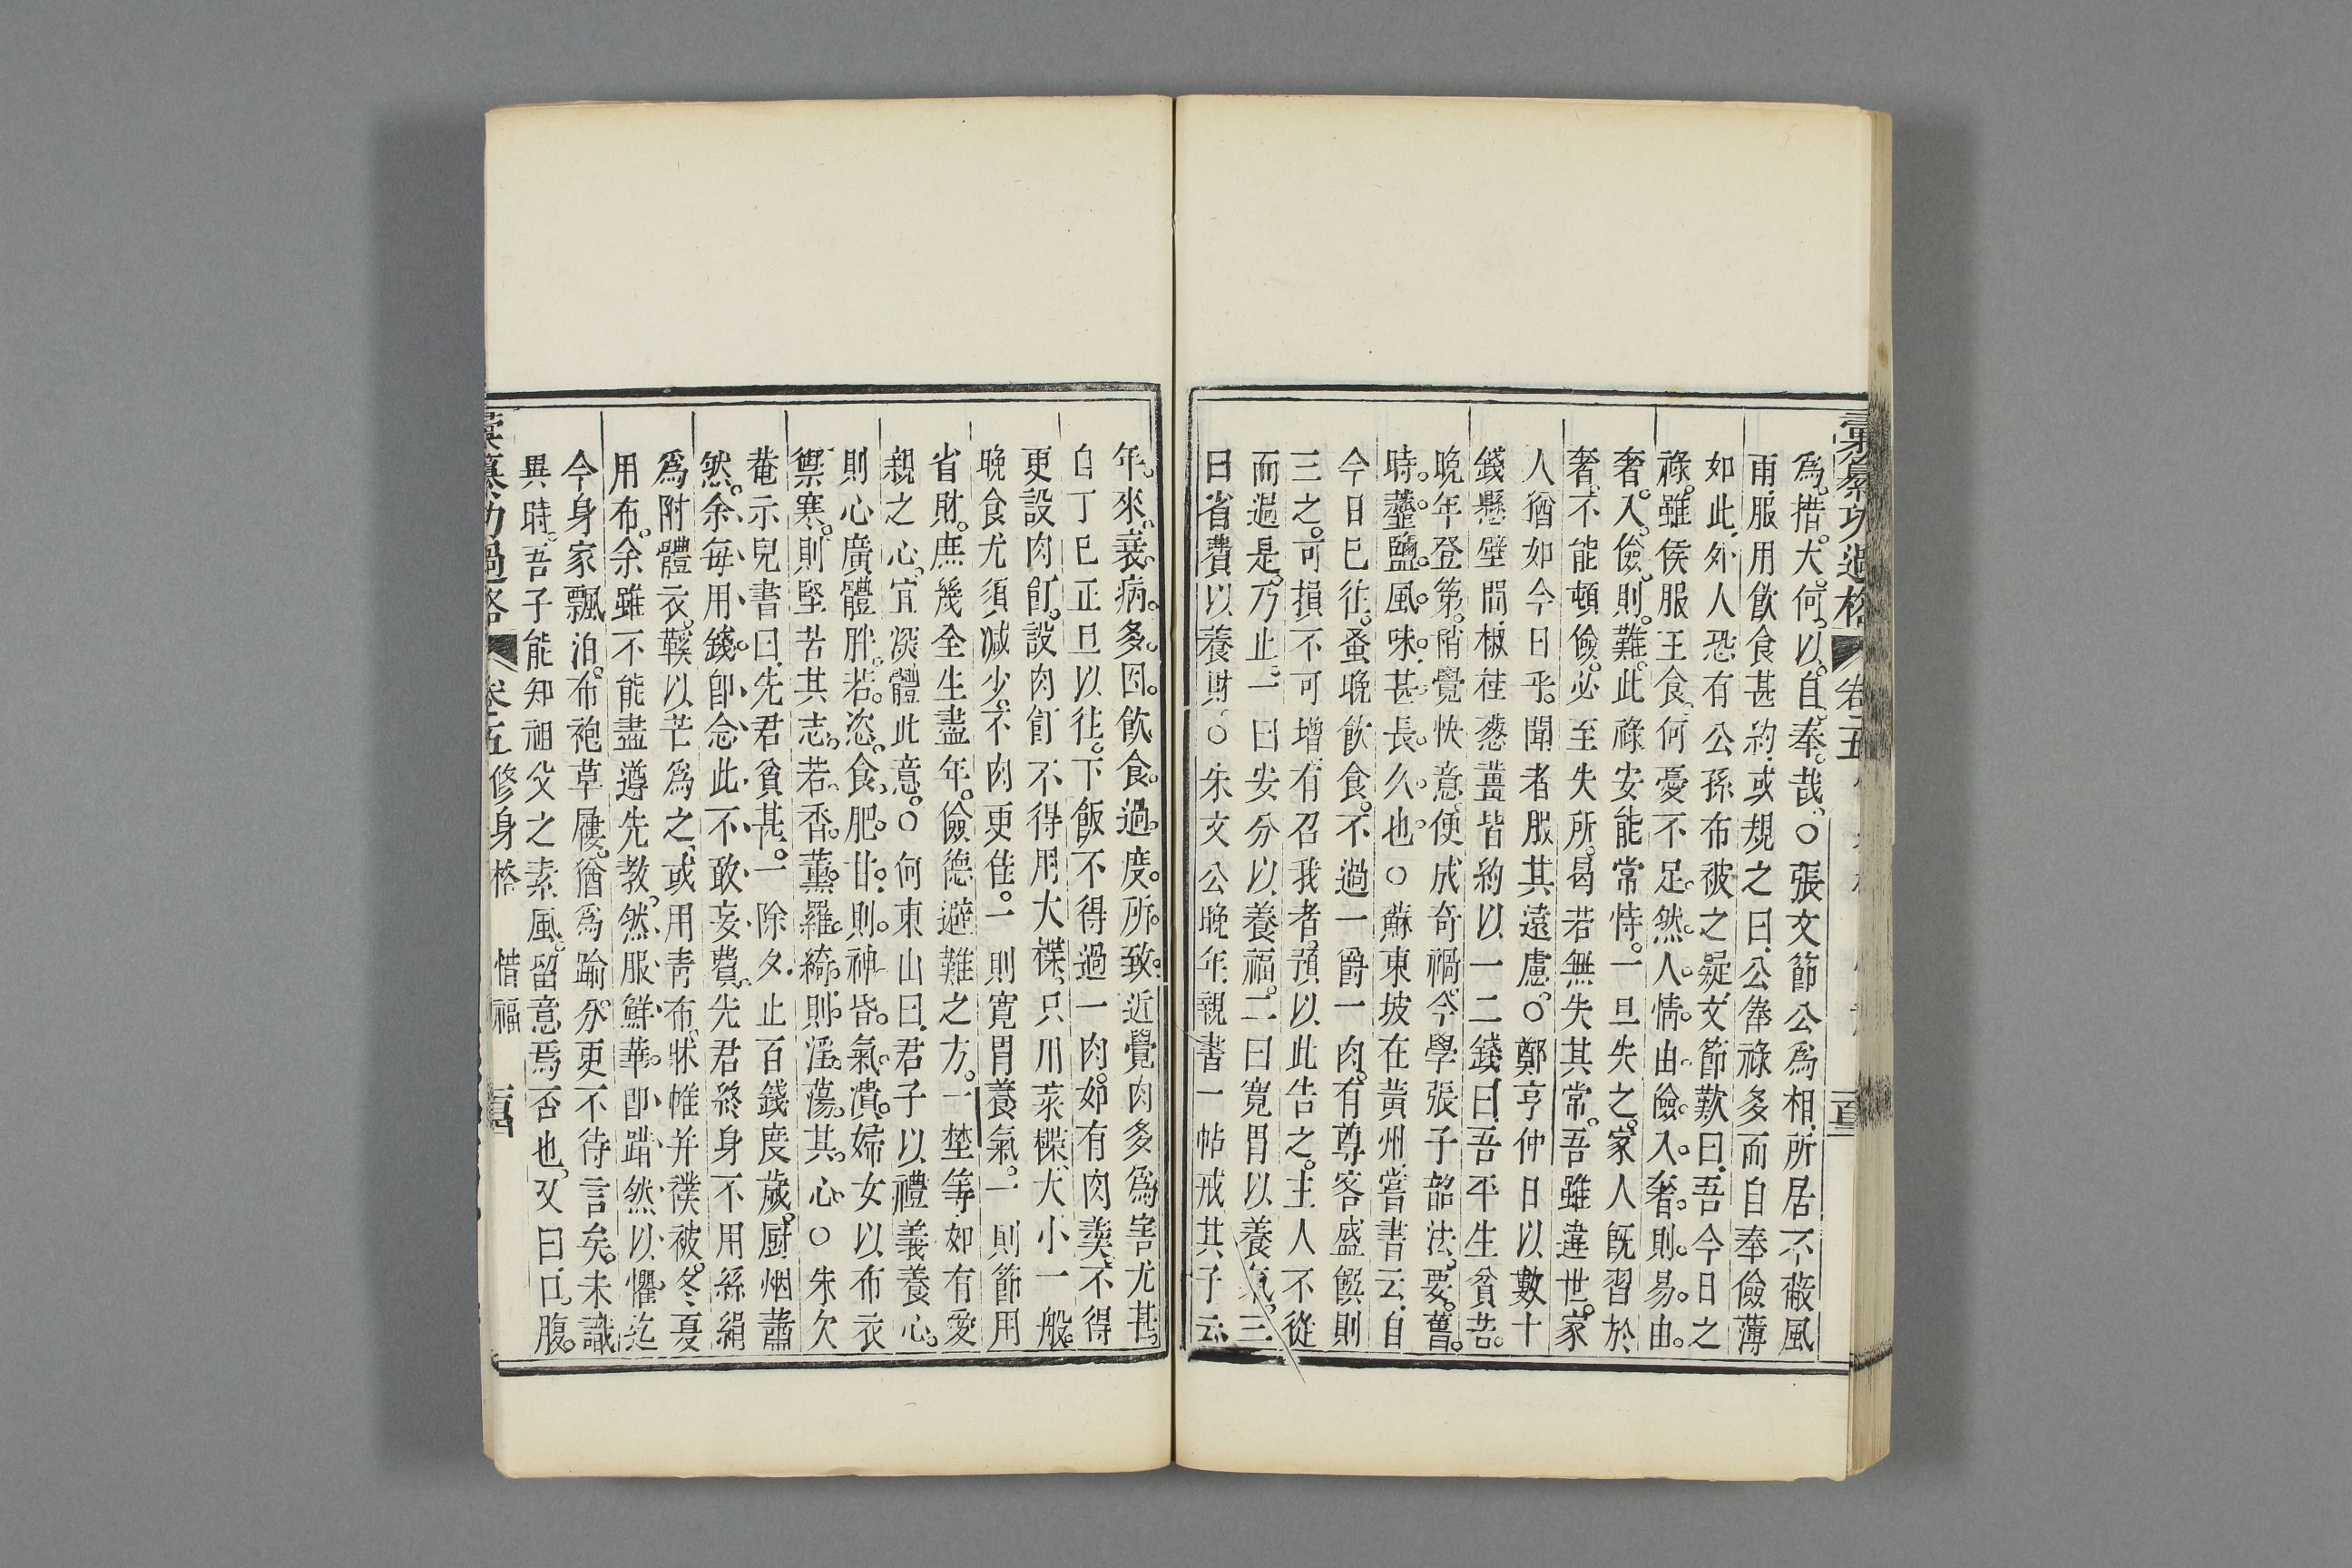 彙纂功過格 卷五 百三
為惜大何以自奉哉○張文節公為相所居不蔽風
雨服用飲食甚約或規之曰公俸祿多而自奉儉薄
如此外人恐有公孫布被之疑文節歎曰吾今日之
祿雖侯服王食何憂不足然人情由儉入奢則易由
奢入儉則難此祿安能常恃一旦失之家人既習於
奢不能頓儉必至失所曷若無失其常吾雖違世家
人猶如今日乎聞者服其遠慮○鄭亨仲日以數十
錢懸壁間椒桂葱薑皆約以一二錢曰吾平生貧苦
晚年登第稍覺快意便成奇禍今學張子韶法要舊
時虀鹽風味甚長久也○蘇東坡在黃州嘗書云自
今日已往蚤晚飲食不過一爵一肉有尊客盛饌則
三之可損不可增有召我者預以此告之主人不從
而過是乃止一曰安分以養福二曰寬胃以養氣三
曰省費以養財○朱文公晚年親書一帖戒其子云
年來衰病多因飲食過度所致近覺肉多為害尤甚
自丁巳正旦以往下飯不得過一肉如有肉羹不得
更設肉飣設肉飣不得用大楪只川菜楪大小一般
晚食尤須減少不肉更佳一則寬胃養氣一則節用
省財庶幾全生盡年儉德避難之方一埜等如有愛
親之心宜深體此意○何東山曰君子以禮義養心
則心廣體胖若恣食肥甘則神昏氣潰婦女以布衣
禦寒則堅苦其志若香薰羅綺則淫蕩其心○朱欠
菴示兒書曰先君貧甚一除夕止百錢度歲厨烟蕭
然余每用錢卽念此不敢妄費先君終身不用絲絹
為附體衣鞵以芒為之或用青布牀帷并襆被冬夏
用布余雖不能盡遵先教然服鮮華卽踖然以懼迄
今身家飄泊布袍草屨猶為踰分更不待言矣未識
異時吾子能知祖父之素風留意焉否也又曰口腹
彙纂功過格 卷五 修身格 惜福 百四